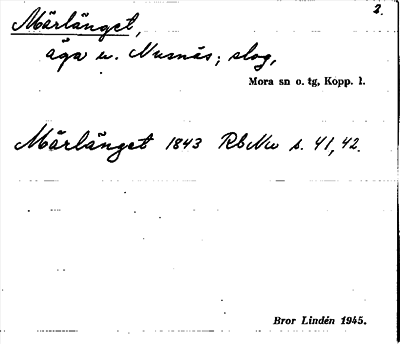 2.
Mårlänget,
äga u. Nusnäs; slog,
Mora sn o. tg, Kopp. l.
Mårlänget 1843 RbNu s. 41, 42.
Bror Lindén 1945.